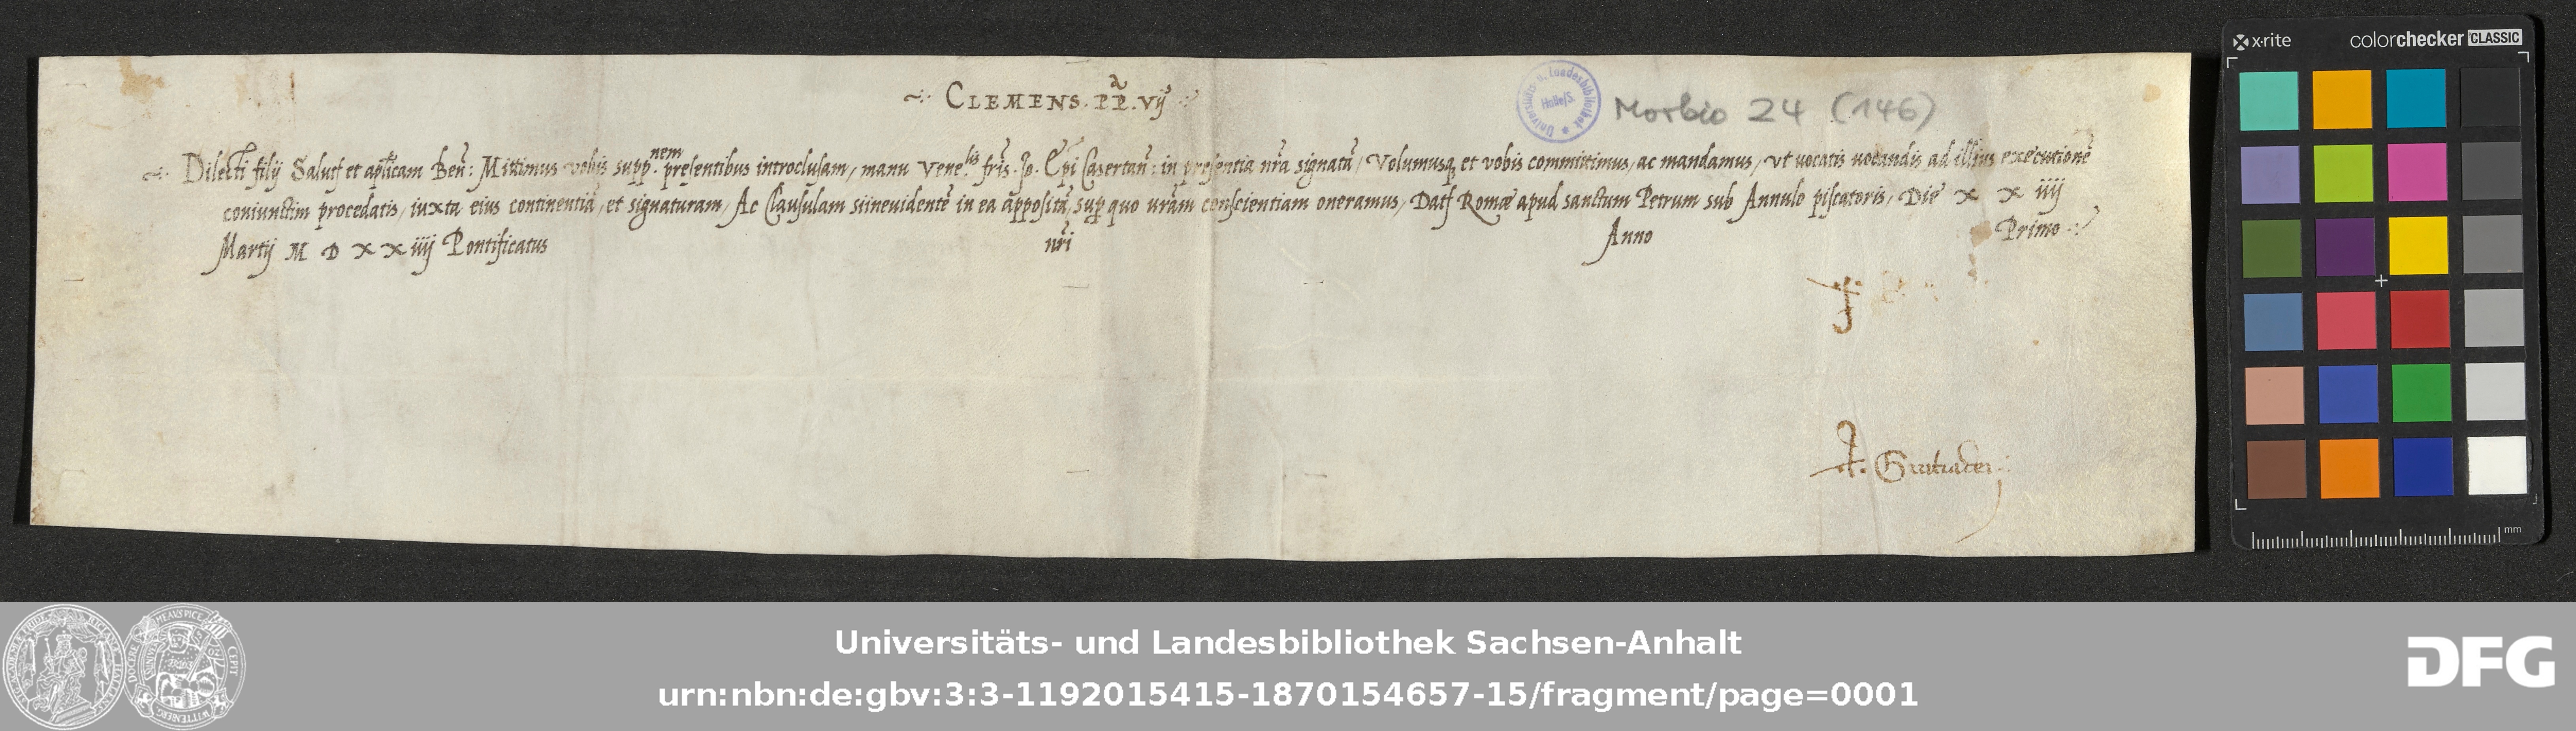 CLEMENS . PP̄ . VIJ
Universitäts u. Landesbibliothek Halle/S.
Morbio 24 (146)
Dilecti filij Salutē et aplicam Beñ: Mittimus vobis supp.nem presentibus introclusam, manu Vene.lis fris. Jo. Epi Casertañ: in presentia nrā signatā, Volumusq, et vobis committimus, ac mandamus, vt uocatis uocandis ad illius executionē
coniunctim procedatis, iuxta eius continentiā, et signaturam, Ac Clausulam siineuidentē in ea appositā, sup quo urām conscientiam oneramus, Datʃ Romæ apud sanctum Petrum sub Annulo piscatoris, Die x x iiij
Martij M D x x iiij Pontificatus nri Anno Primo
x·rite colorchecker CLASSIC
mm
Universitäts- und Landesbibliothek Sachsen-Anhalt
urn:nbn:de:gbv:3:3-1192015415-1870154657-15/fragment/page=0001
DFG